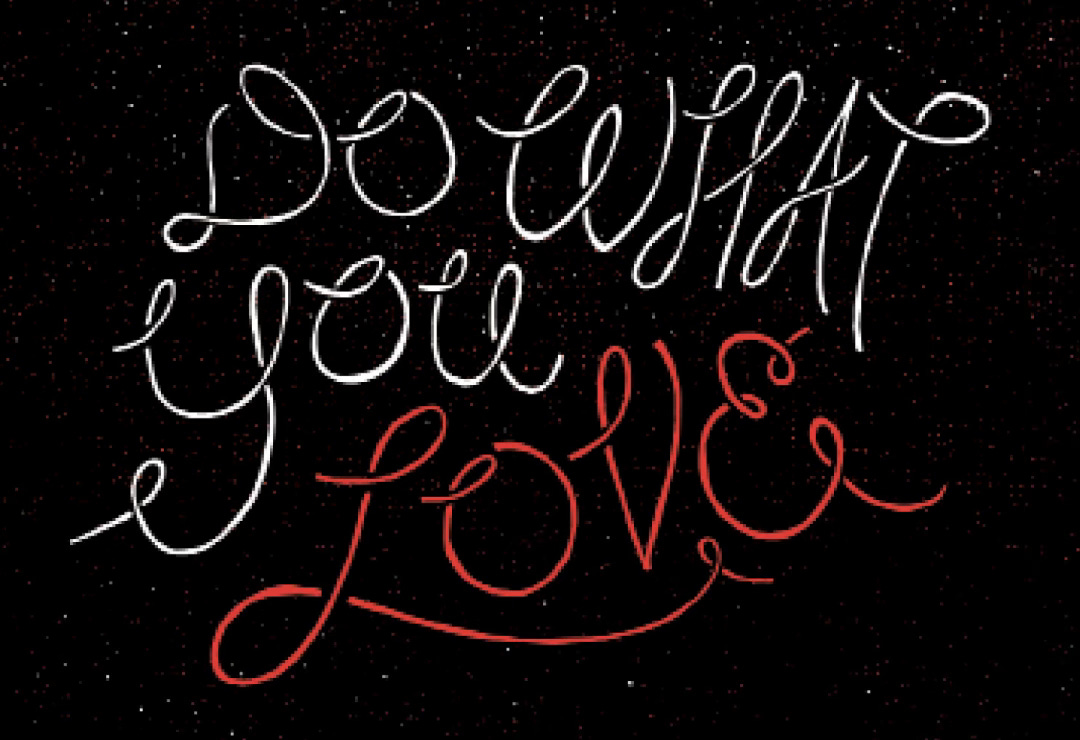 DO WHAT
YOU
LOVE